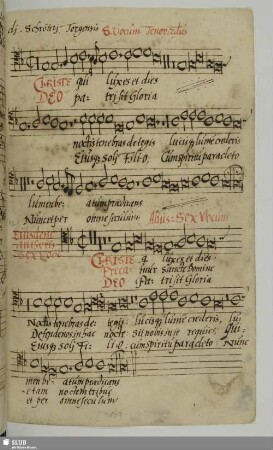 Schröteri Torgensis 6. Vocum Tenor
CHRISTE qui lux es et dies
DEO pa: tri sit Gloria
noctis tenebras detegis lucisqꝫ lume crederis
Eiusqꝫ soli Fili-o Cum spiritu paracleto
lumen be: atum prædicans
Et nunc et per omne seculum Alius. Sex Vocum
Eiusdem
CHRISTE q lux es et dies
Preca mur Sancte Domine
DEO Pa: tri sit Gloria
Noctis tenebras de: tegis lucisqꝫ lume crederis,
Defendenos in hac nocte Sit nobis in te requies,
Eiusqꝫ soli Fi: li-o: cum spiritu paracleto.
men be: atum prædicans
etam noctem tribue
et per omne seculum
SLUB